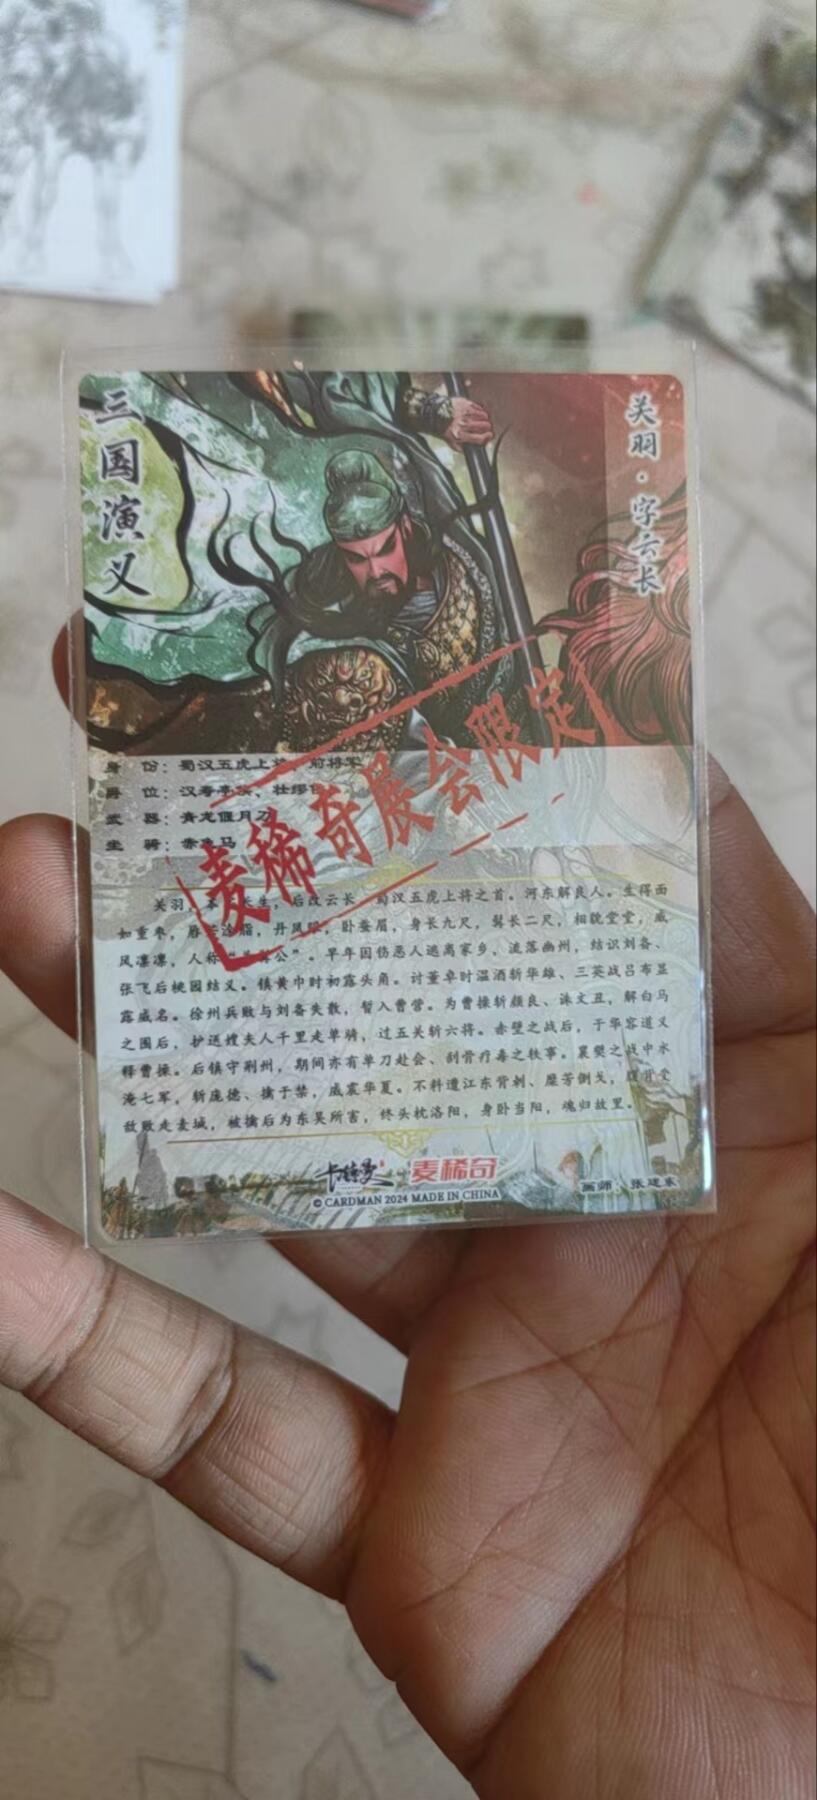 三国演义
关羽·字云长
麦稀奇展会限定
身 份：蜀汉五虎上将、前将军
爵 位：汉寿亭侯、壮缪
武 器：青龙偃月刀
坐 骑：赤兔马
关羽，本字长生，后改云长，蜀汉五虎上将之首。河东解良人。生得面
如重枣，唇若涂脂，丹凤眼，卧蚕眉，身长九尺，髯长二尺，相貌堂堂，威
风凛凛，人称“美髯公”。早年因伤恶人逃离家乡，流落幽州，结识刘备、
张飞后桃园结义。镇黄巾时初露头角。讨董卓时温酒斩华雄、三英战吕布显
露威名。徐州兵败与刘备失散，暂入曹营。为曹操斩颜良、诛文丑，解白马
之围后，护送嫂夫人千里走单骑，过五关斩六将。赤壁之战后，于华容道义
释曹操。后镇守荆州，期间亦有单刀赴会、刮骨疗毒之轶事。襄樊之战中水
淹七军，斩庞德、擒于禁，威震华夏。不料遭江东背刺、糜芳倒戈，腹背受
敌败走麦城，被擒后为东吴所害，终头枕洛阳，身卧当阳，魂归故里。
卡特曼 麦稀奇
© CARDMAN 2024 MADE IN CHINA
画师：张建東